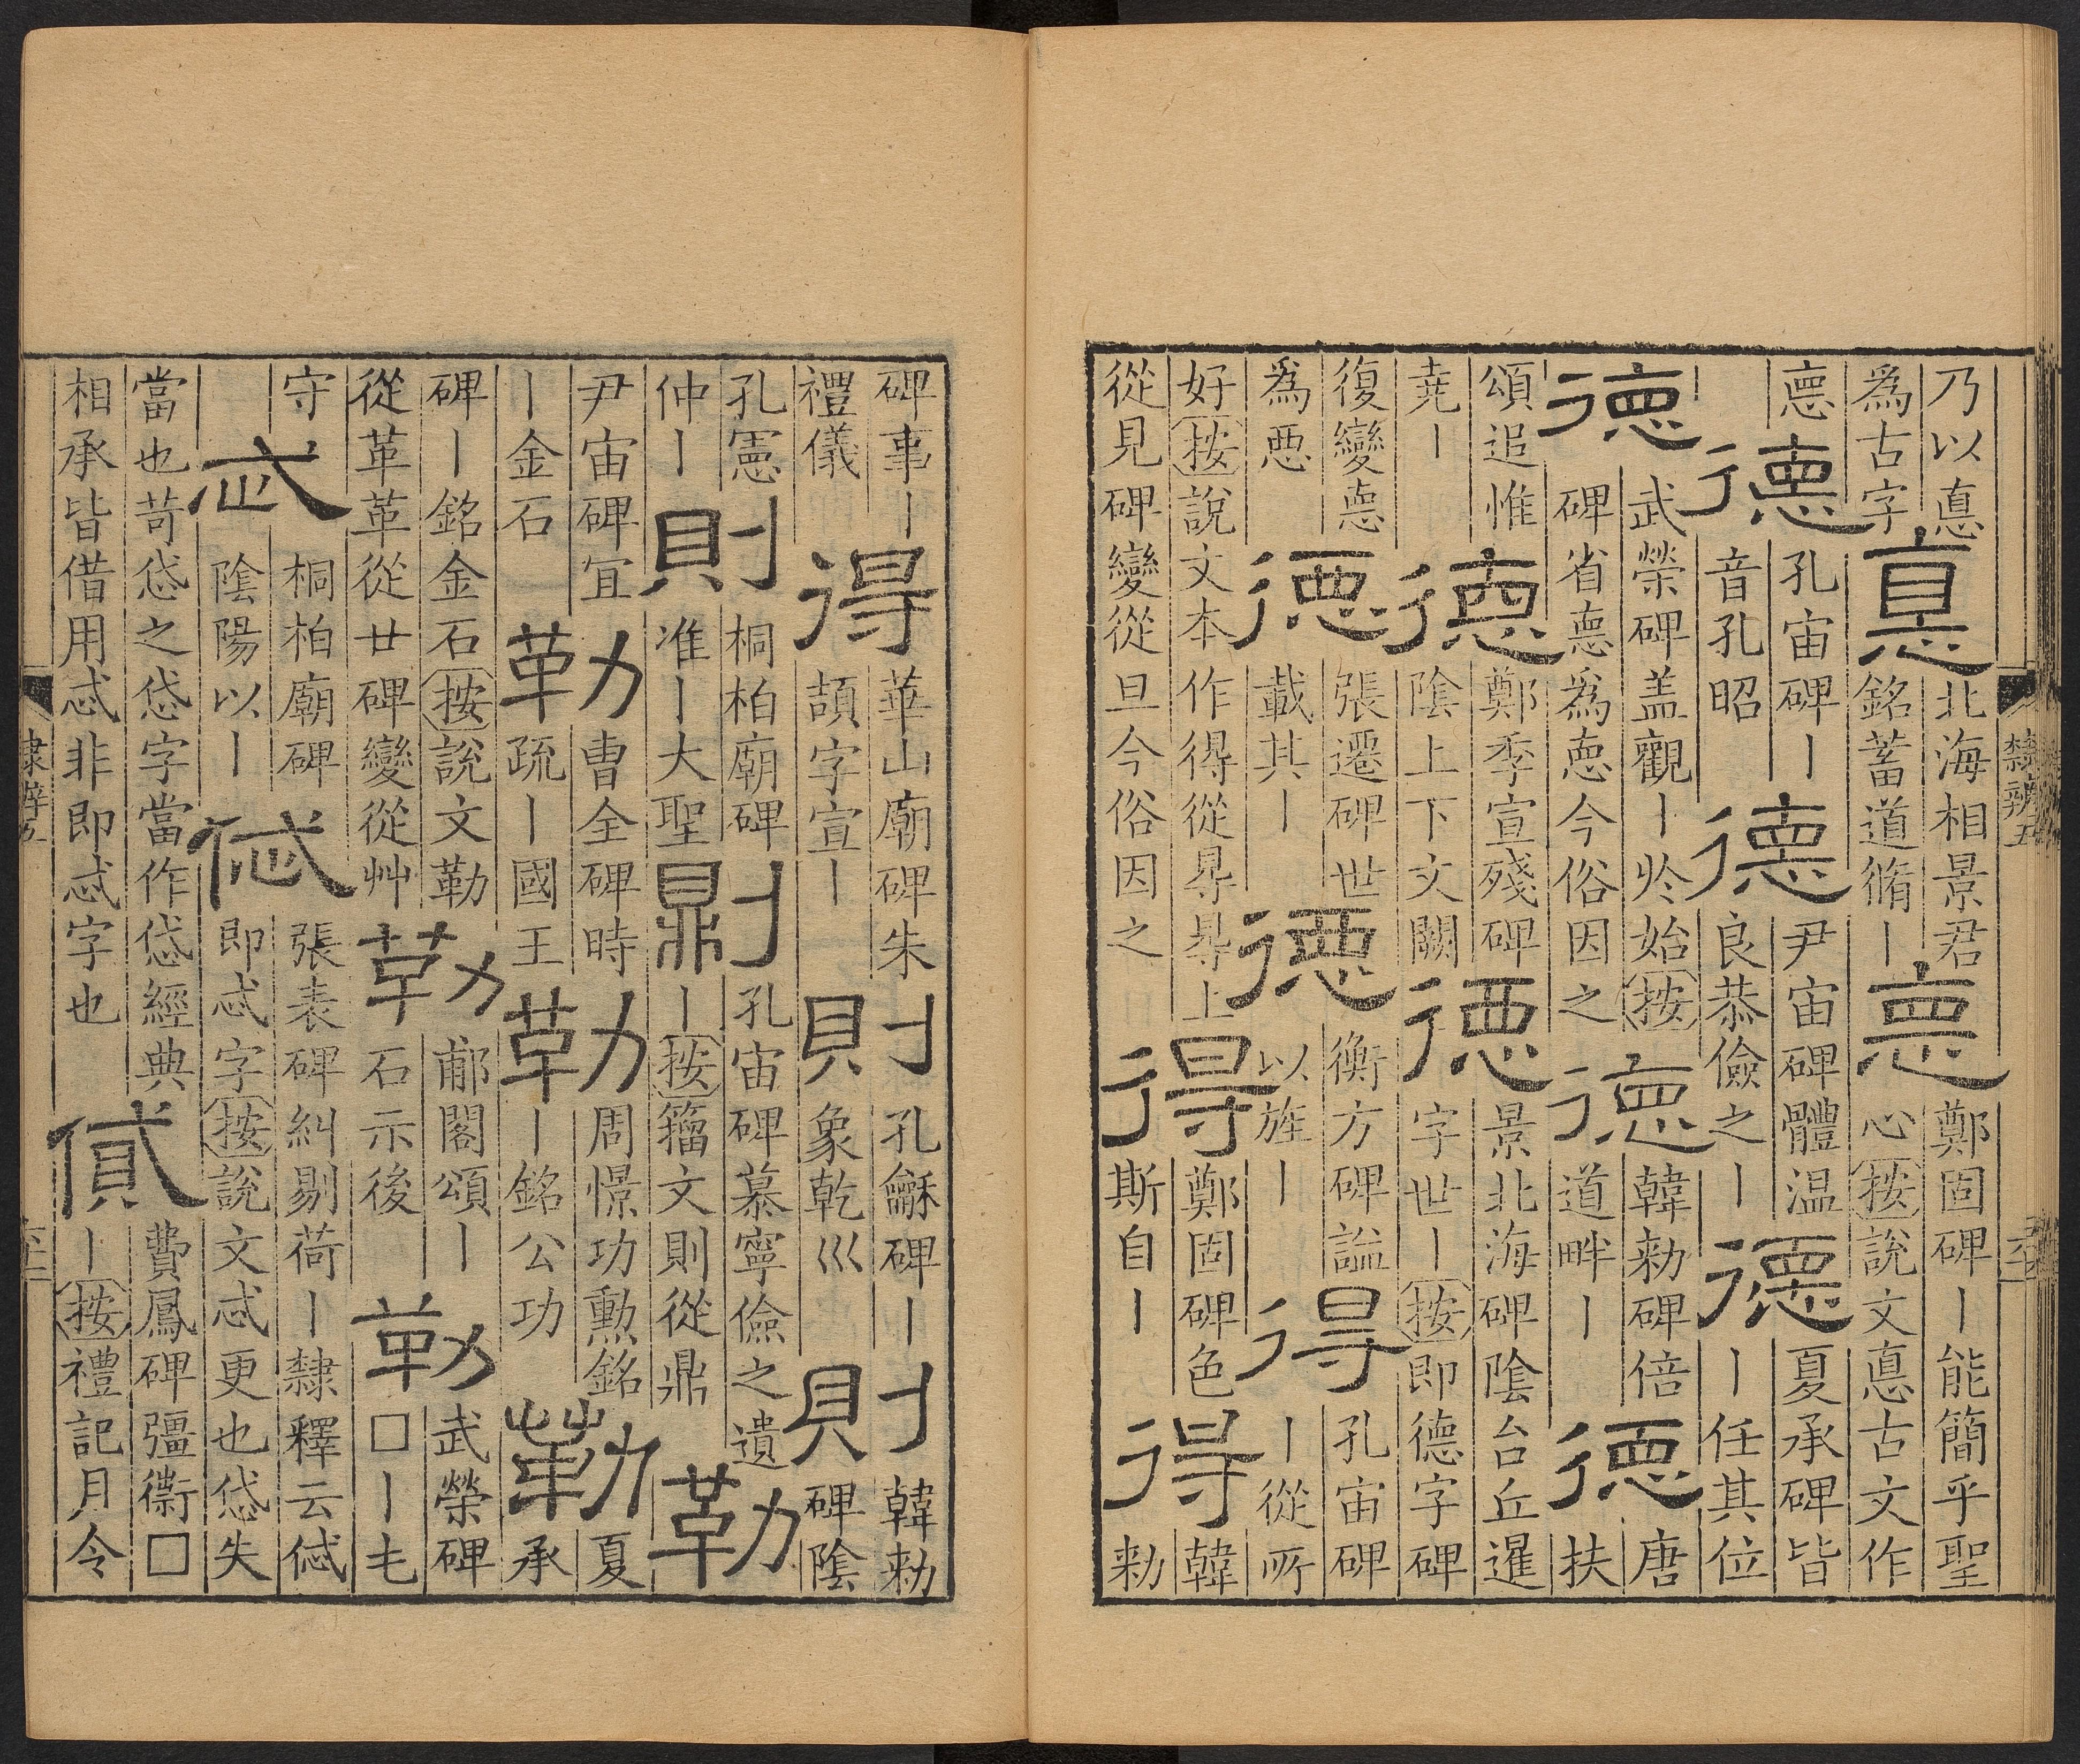 乃以悳為古字悳北海相景君銘蓄道脩丨悳鄭固碑丨能簡乎聖心按說文悳古文作
悳德孔宙碑丨音孔昭德尹宙碑體温良恭儉之丨德夏承碑皆丨任其位
德武榮碑盖觀丨於始按碑省悳為惪今俗因之德韓勑碑倍道畔丨德唐扶
頌追惟堯丨德鄭季宣殘碑陰上下文闕德景北海碑陰台丘暹字世丨按即德字碑
復變悳為惡德張遷碑世載其丨德衡方碑謚以旌丨得孔宙碑丨從所
好按說文本作得從㝵㝵上從見碑變從旦今俗因之得鄭固碑色斯自丨得韓勑
隸辨五
碑事丨禮儀得華山廟碑朱頡字宣丨則孔龢碑丨象乾巛則韓勑碑陰
孔憲仲丨則桐柏廟碑准丨大聖鼎刂孔宙碑慕寧儉之遺丨按籀文則從鼎勒
尹宙碑宜丨金石勒曹全碑時疏丨國王勒周憬功勲銘丨銘公功勒夏承
碑丨銘金石按說文勒從革革從廿碑變從艸勒郙閣頌丨石示後勒武榮碑□丨乇
守忒桐柏廟碑陰陽以丨㤴張表碑糾剔荷丨隸釋云㤴即忒字按說文忒更也㤥失
當也苛㤥之㤥字當作㤥經典相承皆借用忒非即忒字也貣費鳳碑彊衙□丨按禮記月令
隸辨五